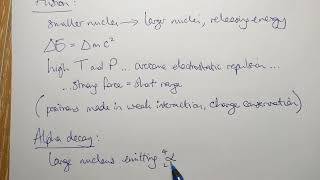 Fusion:
smaller nuclei → larger nuclei, releasing energy
ΔE = Δmc²
high T and P ... overcome electrostatic repulsion ...
... strong force = short range
(positrons made in weak interaction, charge conservation)
Alpha decay:
large nucleus emitting ⁴₂α